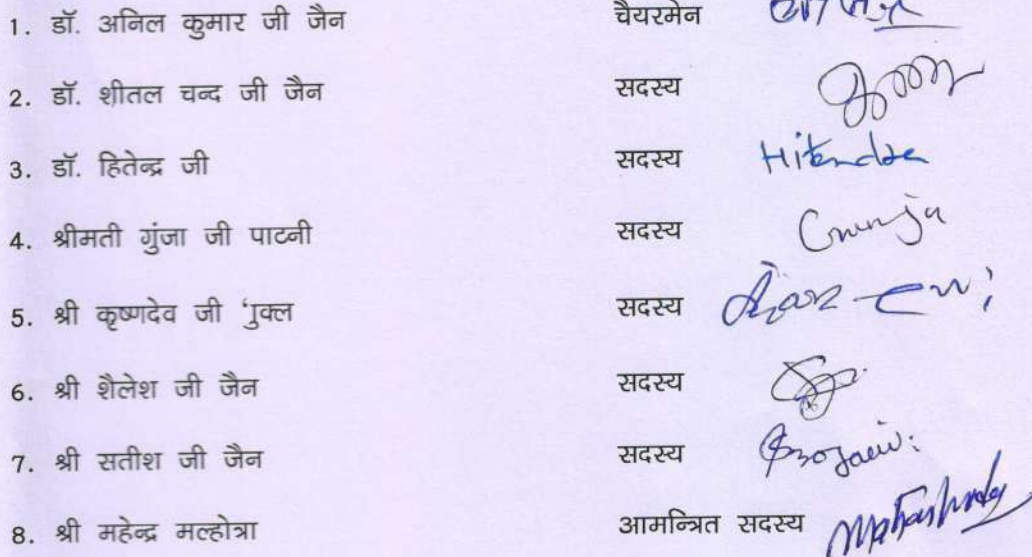 1. डॉ. अनिल कुमार जी जैन चैयरमेन
2. डॉ. शीतल चन्द जी जैन सदस्य
3. डॉ. हितेन्द्र जी सदस्य Hitendra
4. श्रीमती गुंजा जी पाटनी सदस्य Gunja
5. श्री कृष्णदेव जी 'ुक्ल सदस्य
6. श्री शैलेश जी जैन सदस्य
7. श्री सतीश जी जैन सदस्य
8. श्री महेन्द्र मल्होत्रा आमन्त्रित सदस्य